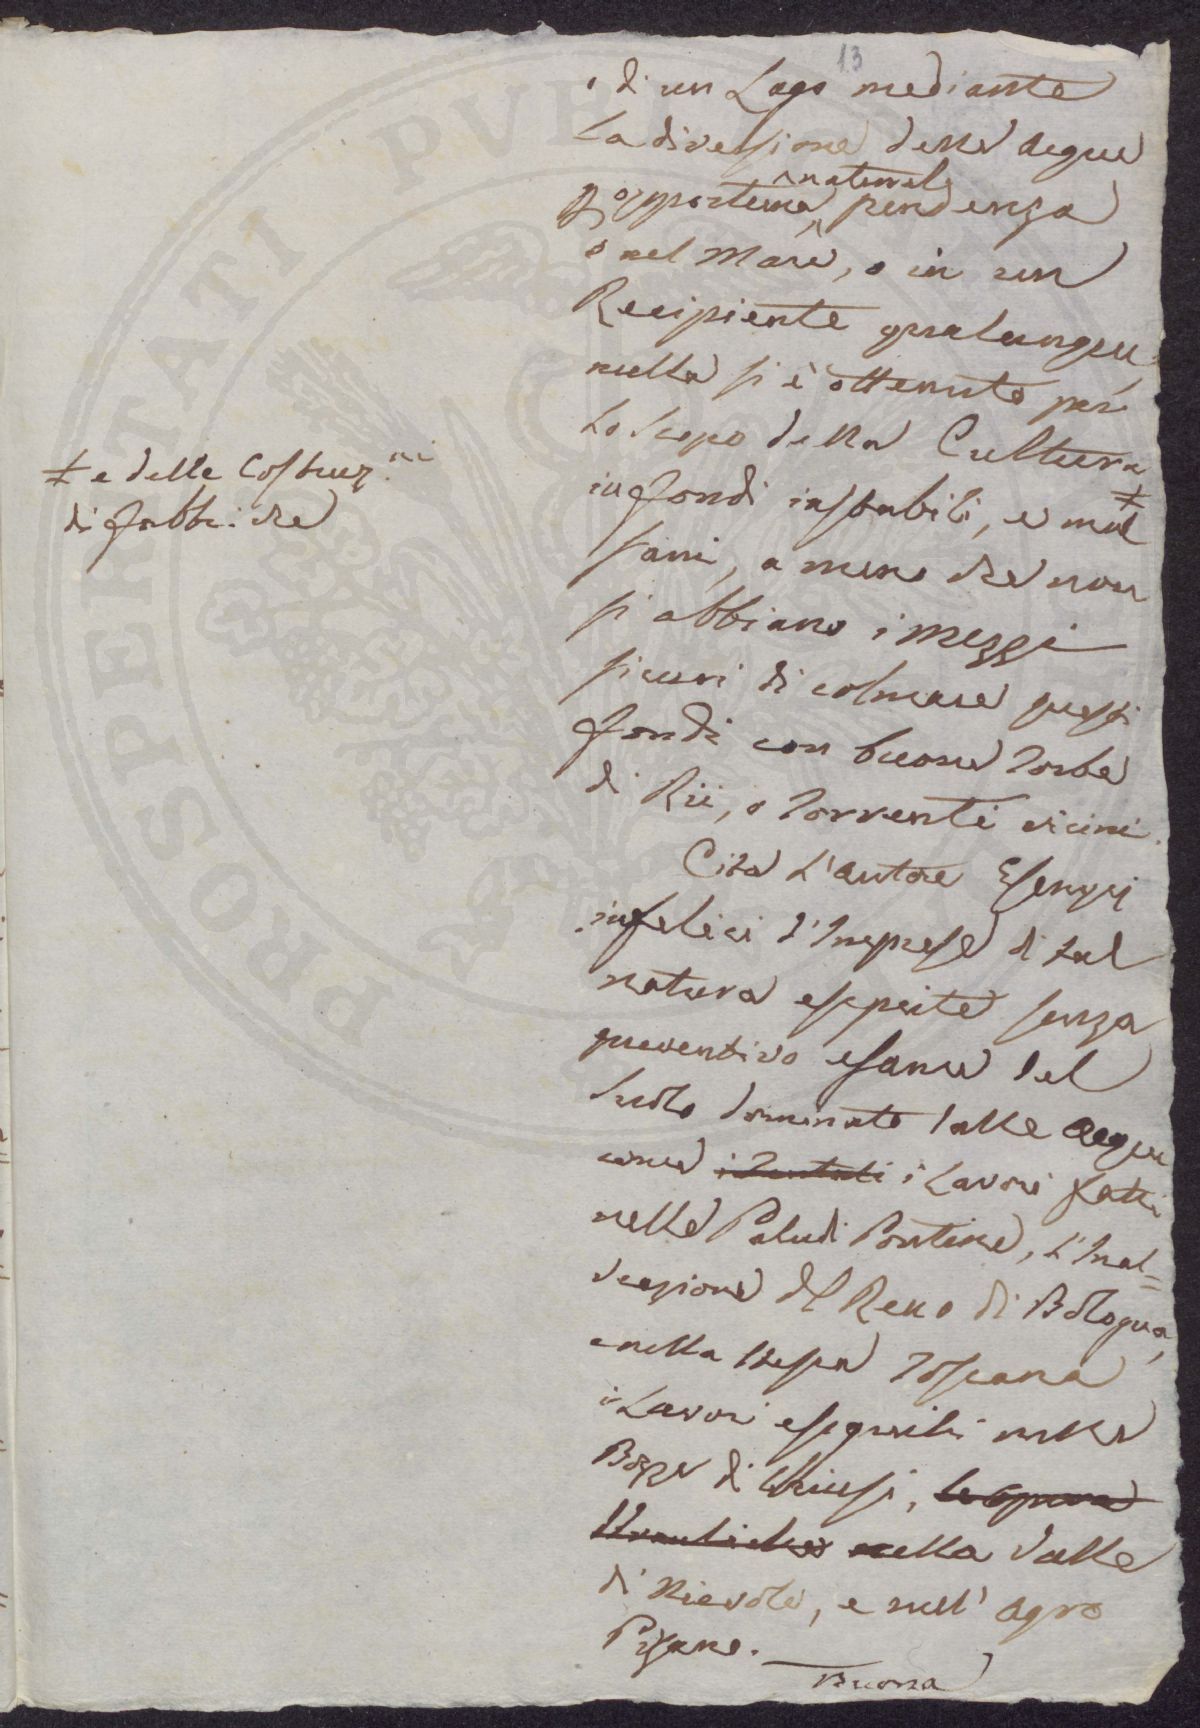 13
o di un Lago mediante
La diversione delle Acque
p opportuna naturale pendenza
o nel Mare, o in un
Recipiente qualunque
nulla si è ottenuto per
Lo scopo della Cultura ‡
in fondi instabili, e mal
sani, a meno che non
si abbiano i mezzi
sicuri di colmare questi
fondi con buone Torbe
di Rii, o Torrenti vicini.
Cita L'autore Esempj
infelici d'Imprese di tal
natura eseguite senza
preventivo esame del
suolo dominato dalle Acque
come i Lavori fatti
nelle Paludi Pontine, L'Inal=
veazione del Reno di Bologna,
e nella stessa Toscana
i Lavori eseguiti nelle
Bozze di Chiusi,
nella Valle
di Nievole, e nell' Agro
Pisano.
Buona
‡ e delle Costruz.ni
di fabbriche
PROSPERITATI PUBL